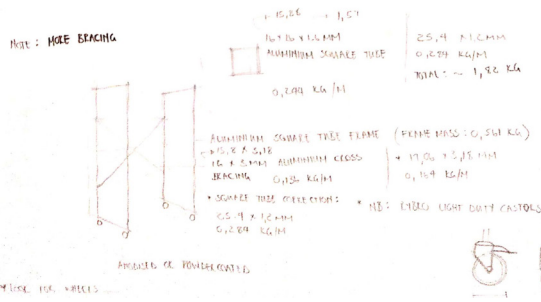 NOTE: MORE BRACING
16 x 16 x 1.6 MM
ALUMINIUM SQUARE TUBE
25,4 x 1.2 MM
0,284 KG/M
TOTAL: ~ 1,82 KG
0,244 KG/M
ALUMINIUM SQUARE TUBE FRAME (FRAME MASS: 0,561 KG)
15,8 x 3,18
16 x 3MM ALUMINIUM CROSS
BRACING 0,136 KG/M
* 19,06 x 3,18 MM
0,164 KG/M
* SQUARE TUBE CONNECTION:
25.4 x 1,2 MM
0,284 KG/M
* NB: LIGHT DUTY CASTORS
ANODISED OR POWDERCOATED
LOOK FOR WHEELS